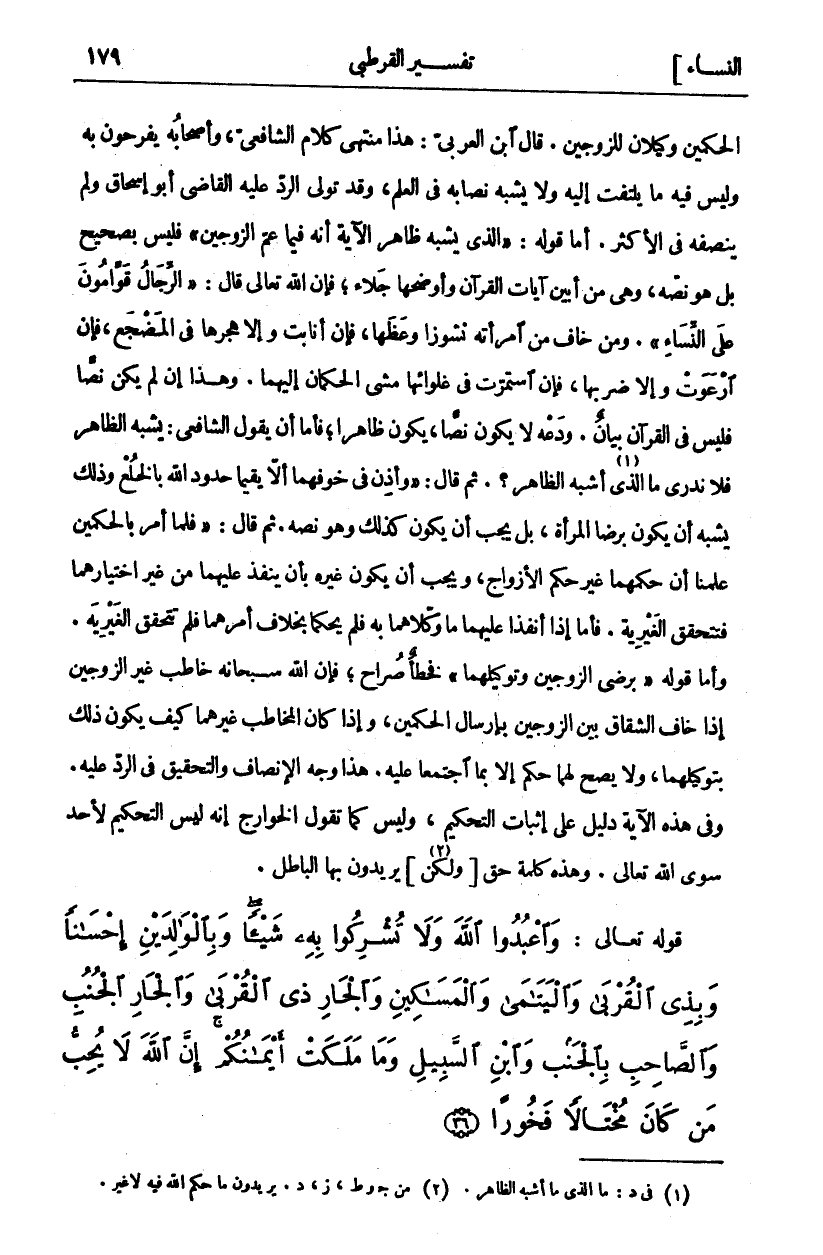 النساء ] تفسير القرطبى ١٧٩
الحكمين وكيلان للزوجين . قال آبن العربىّ : هذا منتهى كلام الشافعىّ ، وأصحابُه يفرحون به
وليس فيه ما يلتفت إليه ولا يشبه نصابه فى العلم ، وقد تولى الردّ عليه القاضى أبو إسحاق ولم
ينصفه فى الأكثر . أما قوله : «الذى يشبه ظاهر الآية أنه فيما عمّ الزوجين» فليس بصحيح
بل هو نصّه ، وهى من أبين آيات القرآن وأوضحها جَلاء ؛ فإن الله تعالى قال : « الرِّجَالُ قَوَّامُونَ
عَلَى النِّسَاءِ » . ومن خاف من آمرأته نشوزا وعَظَها ، فإن أنابت و إلا هجرها فى المَضْجَع ، فإن
آرْعَوَتْ و إلا ضربها ، فإن آستمرّت فى غلوائها مشى الحكمان إليهما . وهـذا إن لم يكن نصًّا
فليس فى القرآن بيانٌ . ودَعْه لا يكون نصًّا ، يكون ظاهرا ؛ فأما أن يقول الشافعى : يشبه الظاهر
فلا ندرى ما الذى (١) أشبه الظاهر ؟ . ثم قال : «وأذِن فى خوفهما ألّا يقيما حدود الله بالخُلْع وذلك
يشبه أن يكون برضا المرأة ، بل يجب أن يكون كذلك وهو نصه . ثم قال : « فلما أمر بالحكمين
علمنا أن حكمهما غير حكم الأزواج ، و يجب أن يكون غيره بأن ينفذ عليهما من غير اختيارهما
فتتحقق الغَيْرِية . فأما إذا أنفذا عليهما ما وكّلاهما به فلم يحكما بخلاف أمرهما فلم تتحقق الغَيْرِيّه .
وأما قوله « برضى الزوجين وتوكيلهما » فخطأٌ صُراح ؛ فإن الله سـبحانه خاطب غير الزوجين
إذا خاف الشقاق بين الزوجين بإرسال الحكمين ، و إذا كان المخاطب غيرهما كيف يكون ذلك
بتوكيلهما ، ولا يصح لهما حكم إلا بما آجتمعا عليه . هذا وجه الإنصاف والتحقيق فى الردّ عليه .
وفى هذه الآية دليل على إثبات التحكيم ، وليس كما تقول الخوارج إنه ليس التحكيم لأحد
سوى الله تعالى . وهذه كلمة حق [ ولكن (٢) ] يريدون بها الباطل .
قوله تعـالى : وَٱعْبُدُوا ٱللَّهَ وَلَا تُشْـرِكُوا بِهِۦ شَيْـًٔا ۖ وَبِٱلْوَٰلِدَيْنِ إِحْسَـٰنًا
وَبِذِى ٱلْقُرْبَىٰ وَٱلْيَتَـٰمَىٰ وَٱلْمَسَـٰكِينِ وَٱلْجَارِ ذِى ٱلْقُرْبَىٰ وَٱلْجَارِ ٱلْجُنُبِ
وَٱلصَّاحِبِ بِٱلْجَنۢبِ وَٱبْنِ ٱلسَّبِيلِ وَمَا مَلَكَتْ أَيْمَـٰنُكُمْ ۚ إِنَّ ٱللَّهَ لَا يُحِبُّ
مَن كَانَ مُخْتَالًا فَخُورًا ٣٦
(١) فى د : ما الذى ما أشبه الظاهر . (٢) من جـ و ط ، ز ، د . يريدون ما حكم الله فيه لا غير .